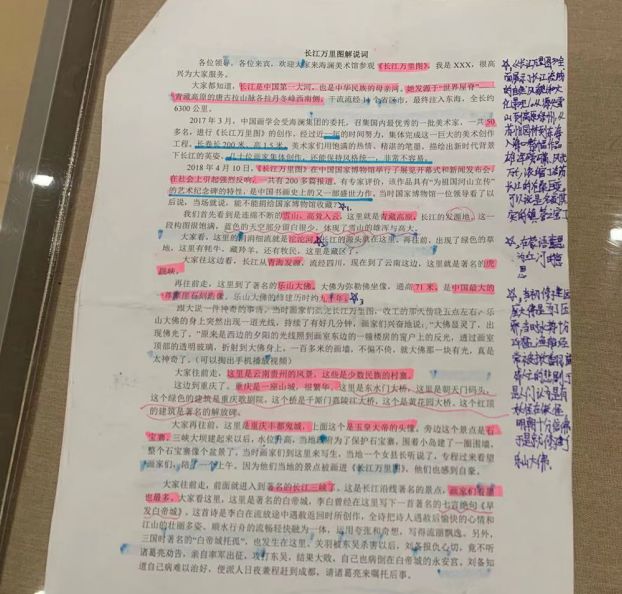 长江万里图解说词
各位领导，各位来宾，欢迎大家来海澜美术馆参观《长江万里图》，我是 XXX，很高
兴为大家服务。
大家都知道，长江是中国第一大河，也是中华民族的母亲河。她发源于“世界屋脊”——
青藏高原的唐古拉山脉各拉丹冬峰西南侧。干流流经十个省市，最终注入东海，全长约
6300 公里。
2017 年 3 月，中国画学会受海澜集团的委托，召集国内最优秀的一批美术家，一共 50
多名，进行《长江万里图》的创作，经过近一年的时间努力，集体完成这一巨大的美术创作
工程。长卷长 200 米，高 1.5 米。美术家们用饱满的热情、精湛的笔墨，描绘出新时代背景
下长江的英姿。几十位画家集体创作，还能保持风格统一，非常不容易。
2018 年 4 月 10 日，《长江万里图》在中国国家博物馆举行了展览开幕式和新闻发布会，
在社会上引起强烈反响，一共有 200 多篇报道。有专家评价，该作品具有“为祖国河山立传”
的艺术纪念碑的特性，是中国书画史上的又一部盛世力作。当时国家博物馆一位领导看了以
后说，当场就说，能不能捐给国家博物馆收藏？
我们首先看到是连绵不断的雪山，高耸入云，这里就是青藏高原，长江的发源地，这一
段构图很饱满，蓝色的天空部分留白很少，体现了雪山的雄浑与高大。
大家看，这里的涓涓细流就是沱沱河，长江的源头就在这里。再往前，出现了绿色的草
地，这里有牦牛、藏羚羊，还有牧民，这里是藏区了。
大家往这边看，长江从青海发源，流经四川，现在到了云南这边，这里就是著名的虎
跳峡。
再往前走，这里到了著名的乐山大佛，大佛为弥勒佛坐像，通高 71 米，是中国最大的
一尊摩崖石刻造像。乐山大佛的修建历时约九十年。
跟大说一件神奇的事清，当时画家们在此江万里图，收工的那天傍晚五点左右，
乐山大佛的身上突然出现一道光线，持续了有好几分钟，画家们兴奋地说：“大佛显灵了，出
现佛光了。”原来是西边的夕阳的光线照到画室东边的一幢楼房的窗户上的反光，通过画室
顶部的透明玻璃，折射到大佛身上，一百多米的画墙，不偏不倚，就大佛那一块有光，真是
太神奇了。（可以掏出手机播放视频）
大家往前走，这里是云南贵州的风景，这些是少数民族的村寨。
这边到重庆了。重庆是一座山城，很繁华，这里是东水门大桥，这里是朝天门码头，
这个绿色的建筑是重庆歌剧院，这个桥是千厮门嘉陵江大桥，这个是黄花园大桥。这个红顶
的建筑是著名的解放碑。
大家再往前，这里是重庆丰都鬼城，上面这个是玉皇大帝的头像。旁边这个景点是石
宝寨，三峡大坝建起来以后，水位升高，当地政府为了保护石宝寨，围着小岛建了一圈围墙，
整个石宝寨像个盆景了，当时画家们到这里来写生，当地一个女县长听说了，专程过来看望
画家们，陪了一个上午。因为他们当地的景点被画进《长江万里图》，他们也感到自豪。
大家往前走，前面就进入到著名的长江三峡了，这是长江沿线著名的景点，画家们着墨
也最多。大家看这里，这里是著名的白帝城，李白曾经在这里写下一首著名的七言绝句《早
发白帝城》。这首诗是李白在流放途中遇赦返回时所创作，全诗把诗人遇赦后愉快的心情和
江山的壮丽多姿、顺水行舟的流畅轻快融为一体，运用夸张和奇想，写得流丽飘逸。另外，
三国时著名的“白帝城托孤”，也发生在这里。关羽被东吴杀害以后，刘备报仇心切，竟不听
诸葛亮劝告，亲自率军出征，攻打东吴，结果大败，自己也病倒在白帝城的永安宫，刘备知
道自己病难以治好，便派人日夜兼程赶到成都，请诸葛亮来嘱托后事。
乐山大佛。